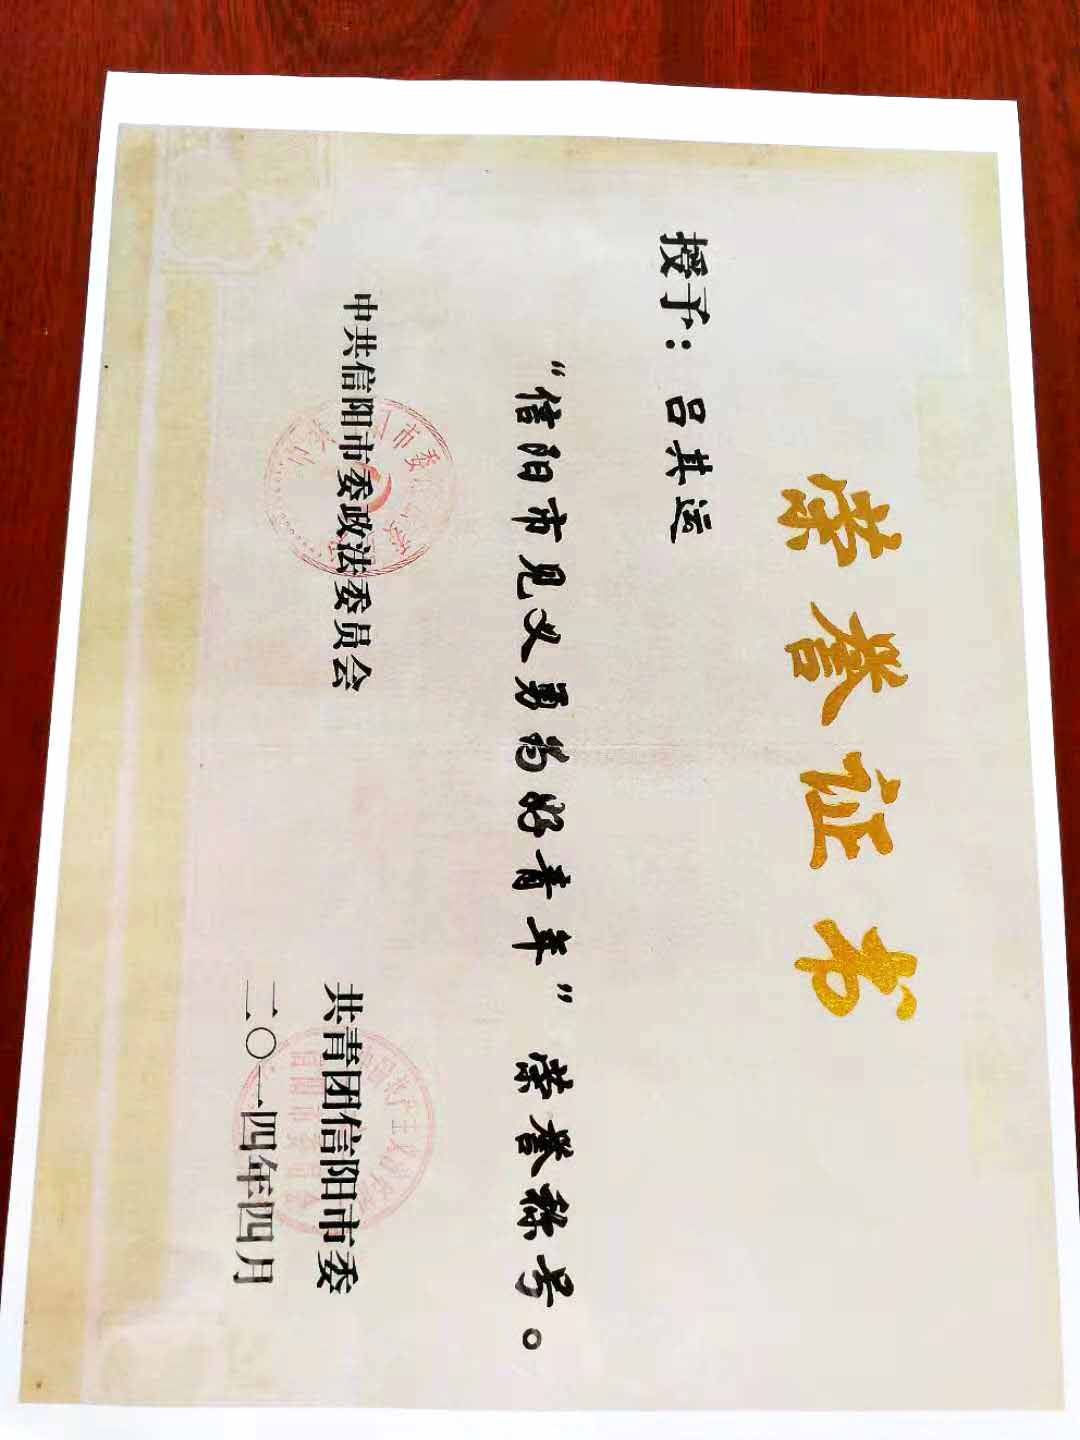 荣誉证书
授予：吕其运
“信阳市见义勇为好青年”荣誉称号。
中共信阳市委政法委员会
共青团信阳市委
二〇一四年四月